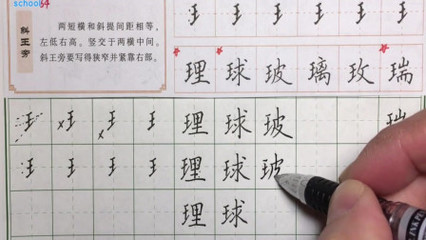 school54
斜王旁
两短横和斜提间距相等，
左低右高。竖交于两横中间。
斜王旁要写得狭窄并紧靠右部。
理 球 玻 璃 玫 瑞
王 王 王 王 理 球 玻 瑞
王 王 王 王 理 球 玻
理 球